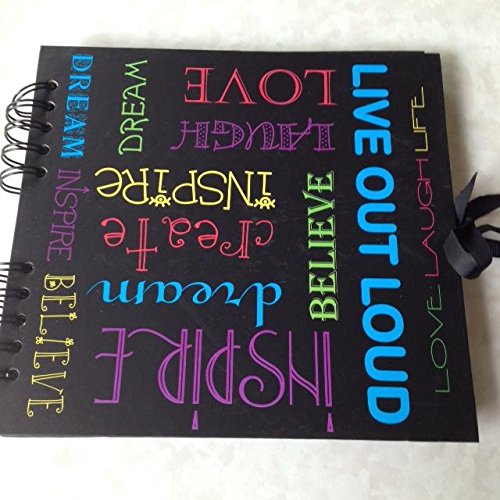 DREAM
INSPIRE
BELIEVE
DREAM
LOVE
LAUGH
iNSPiRe
create
dream
iNSPIRE
BELIEVE
LIVE OUT LOUD
LOVE LAUGH LIFE